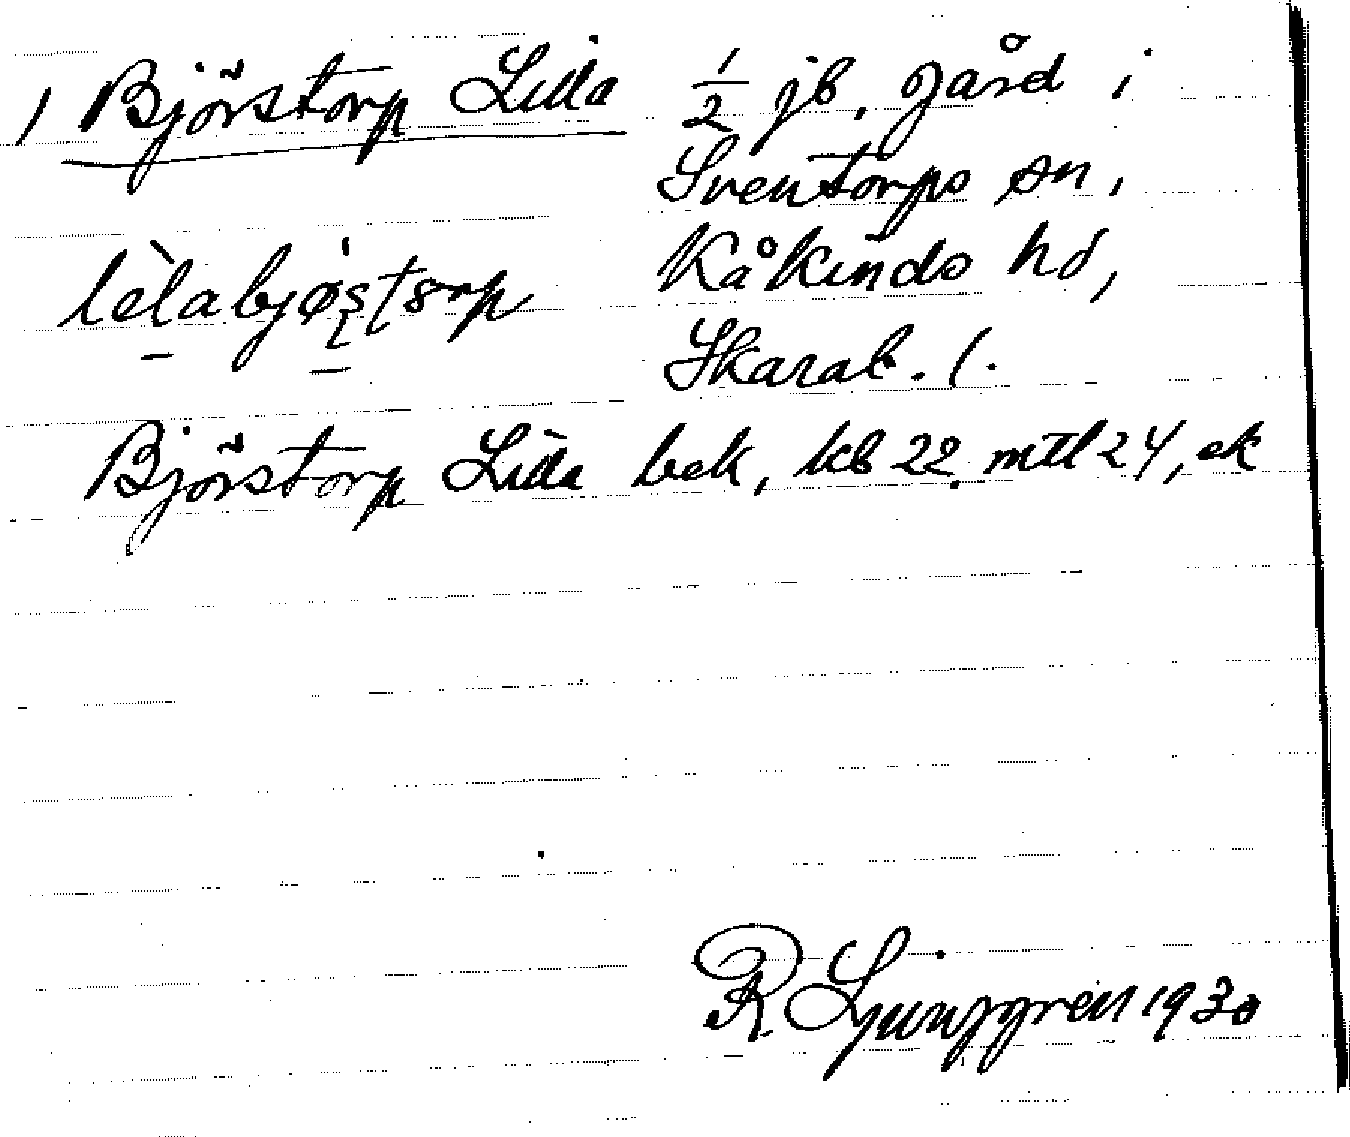 1 Björstorp Lilla 1/2 jb. gård i
Sventorps sn,
lèlabjøstorp Kåkinds hd,
Skarab. l.
Björstorp Lilla bek, kb 22 mtl 24, ek
R Ljunggren 1930